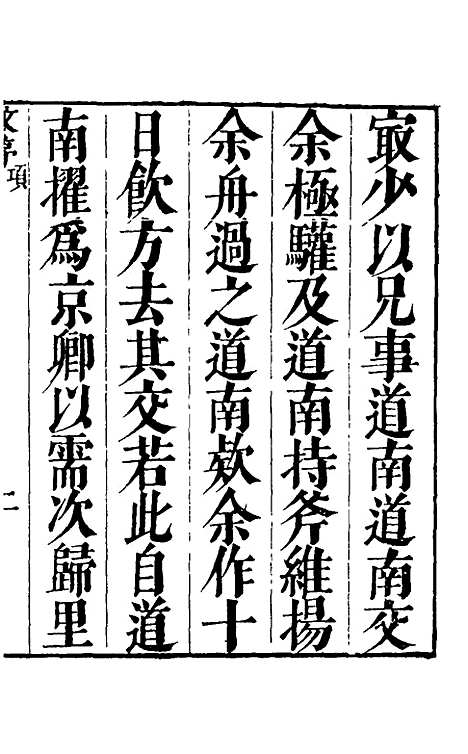 㝡少以兄事道南道南交
余極驩及道南持斧維揚
余舟過之道南欵余作十
日飲方去其交若此自道
南擢爲京卿以需次歸里
項
二